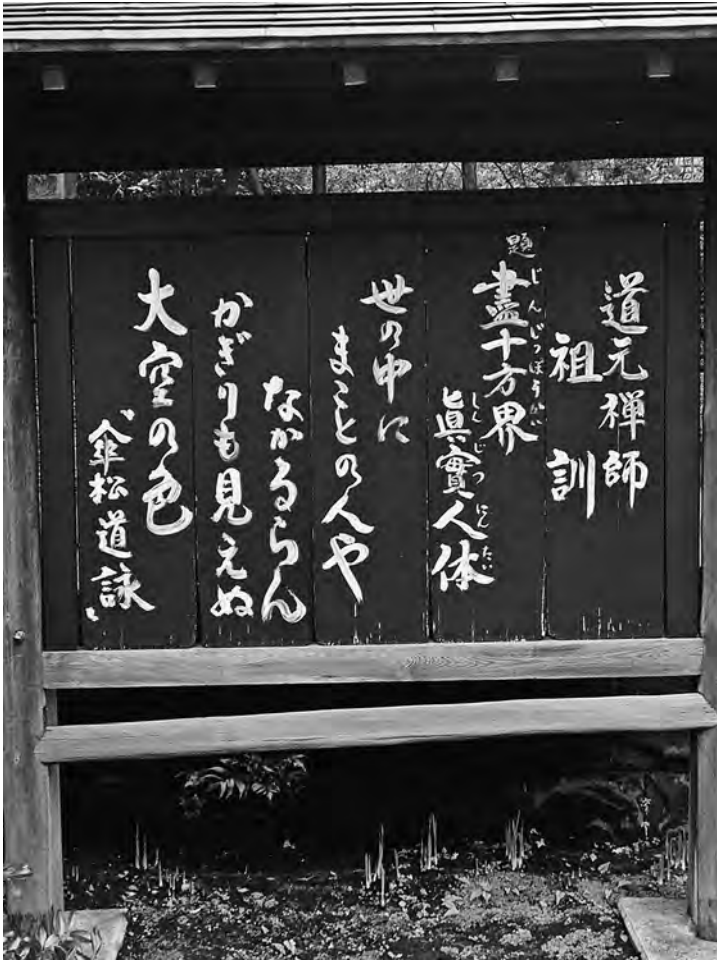 道元禅師
祖訓
題
盡十方界
じんじっぽうかい
眞實人体
しんじつにんたい
世の中に
まことの人や
なかるらん
かぎりも見えぬ
大空の色
“傘松道詠”